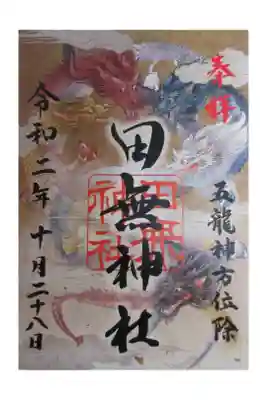 奉拝
五龍神方位除
田無神社
田無
神社
令和二年十月二十八日